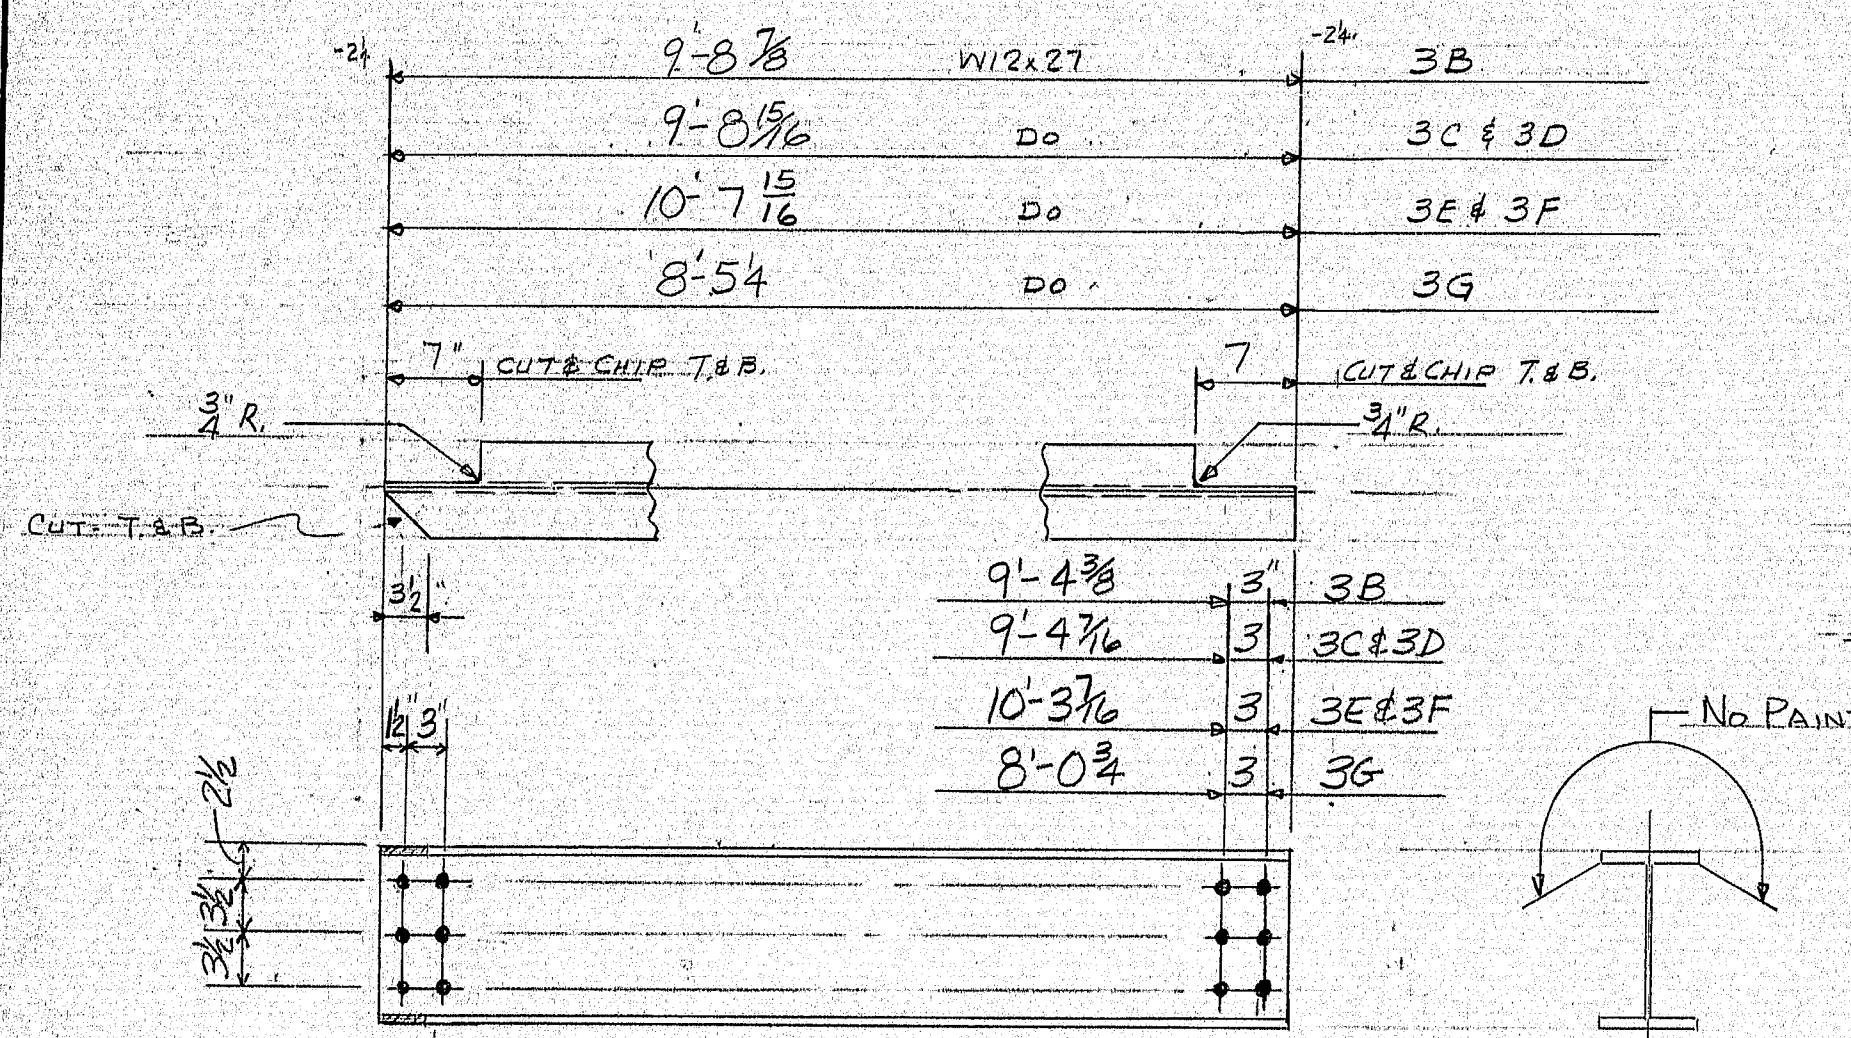 -2¼ 9'-8 7/8 W12x27 -2¼ 3B
9'-8 15/16 Do 3C & 3D
10'-7 15/16 Do 3E & 3F
8'-5¼ Do 3G
7" CUT & CHIP T. & B. 7 CUT & CHIP T. & B.
3/4" R. 3/4" R.
CUT- T. & B.
3½"
9'-4 3/8 3" 3B
9'-4 7/16 3 3C & 3D
10'-3 7/16 3 3E & 3F
8'-0 3/4 3 3G
1½" 3"
No PAINT
2½
3½
3½